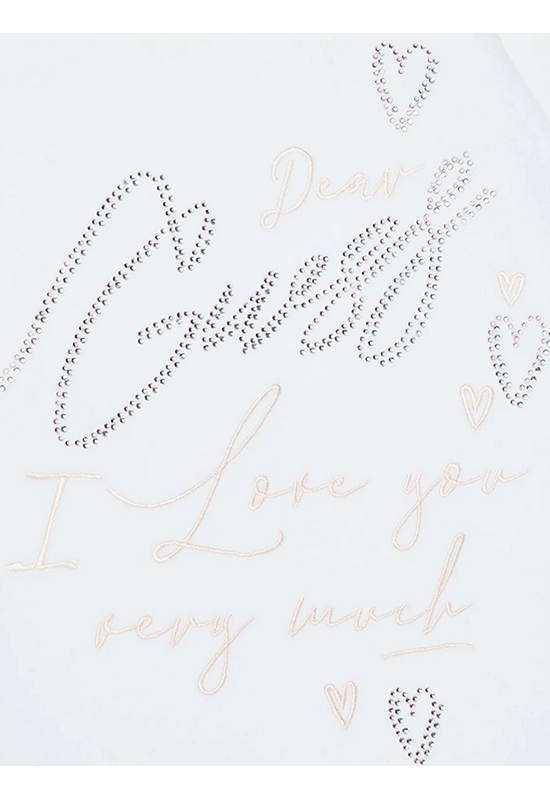 Dear
Guess
I Love you
very much